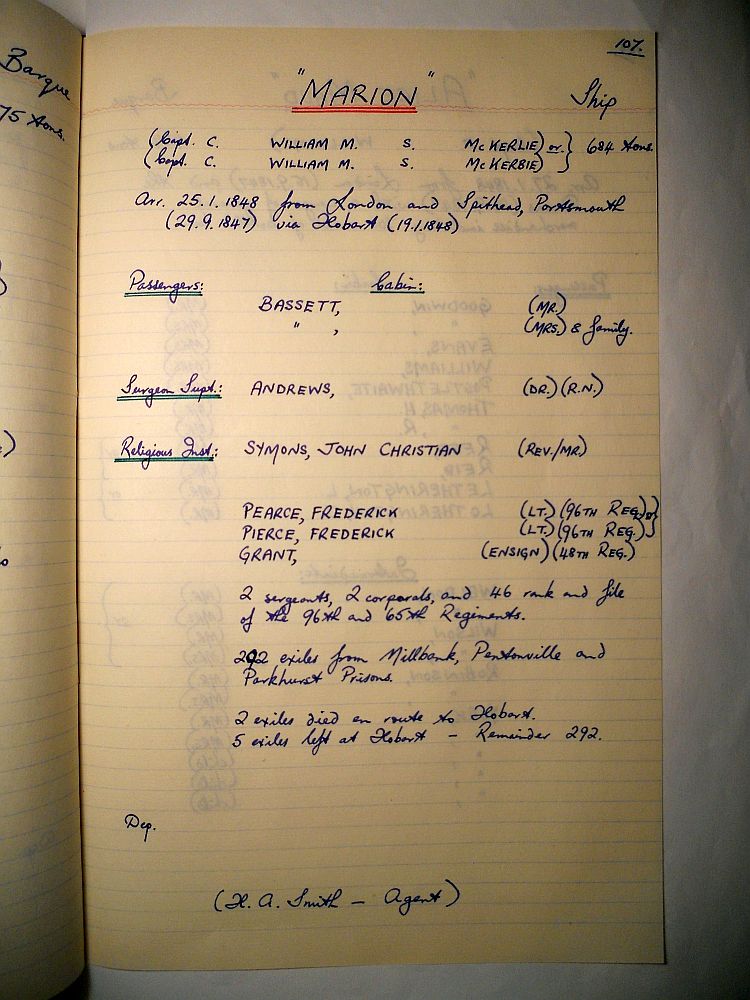 Barque
75 tons.
107.
"MARION" Ship
(Capt. C. WILLIAM M. S. McKERLIE) or } 684 tons.
(Capt. C. WILLIAM M. S. McKERBIE) }
Arr. 25.1.1848 from London and Spithead, Portsmouth
(29.9.1847) via Hobart (19.1.1848)
Passengers: Cabin:
BASSETT, (MR.)
" , (MRS.) & family.
Surgeon Supt.: ANDREWS, (DR.) (R.N.)
Religious Inst.: SYMONS, JOHN CHRISTIAN (REV./MR.)
PEARCE, FREDERICK (LT.) (96TH REG.) or }
PIERCE, FREDERICK (LT.) (96TH REG.) }
GRANT, (ENSIGN) (48TH REG.)
2 sergeants, 2 corporals, and 46 rank and file
of the 96th and 65th Regiments.
292 exiles from Millbank, Pentonville and
Parkhurst Prisons.
2 exiles died en route to Hobart.
5 exiles left at Hobart – Remainder 292.
Dep.
(H. A. Smith – Agent)